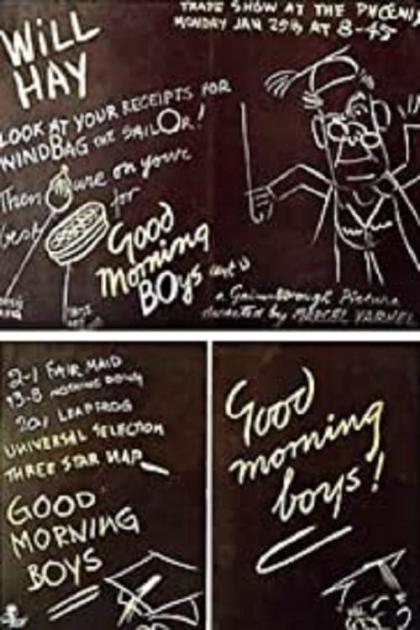 TRADE SHOW AT THE PHOENIX
MONDAY JAN 25th AT 8-45
WiLL
HAY
LOOK AT YOUR RECEIPTS FOR
WINDBAG THE SAILOR!
Then on your
best for
Good
Morning
BOYS
a Gainsborough Picture
directed by MARCEL VARNEL
2-1 FAIR MAID
13-8 NOTHING DOING
20/1 LEAPFROG
UNIVERSAL SELECTION
THREE STAR NAP
GOOD
MORNING
BOYS
Good
morning
boys!